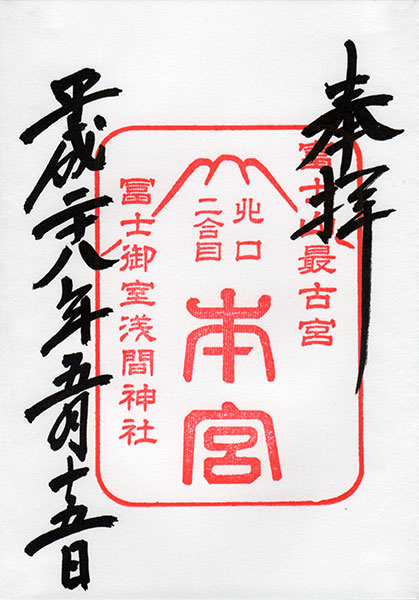 奉拝
富士山最古宮
北口
二合目
本宮
冨士御室浅間神社
平成二十八年五月十五日